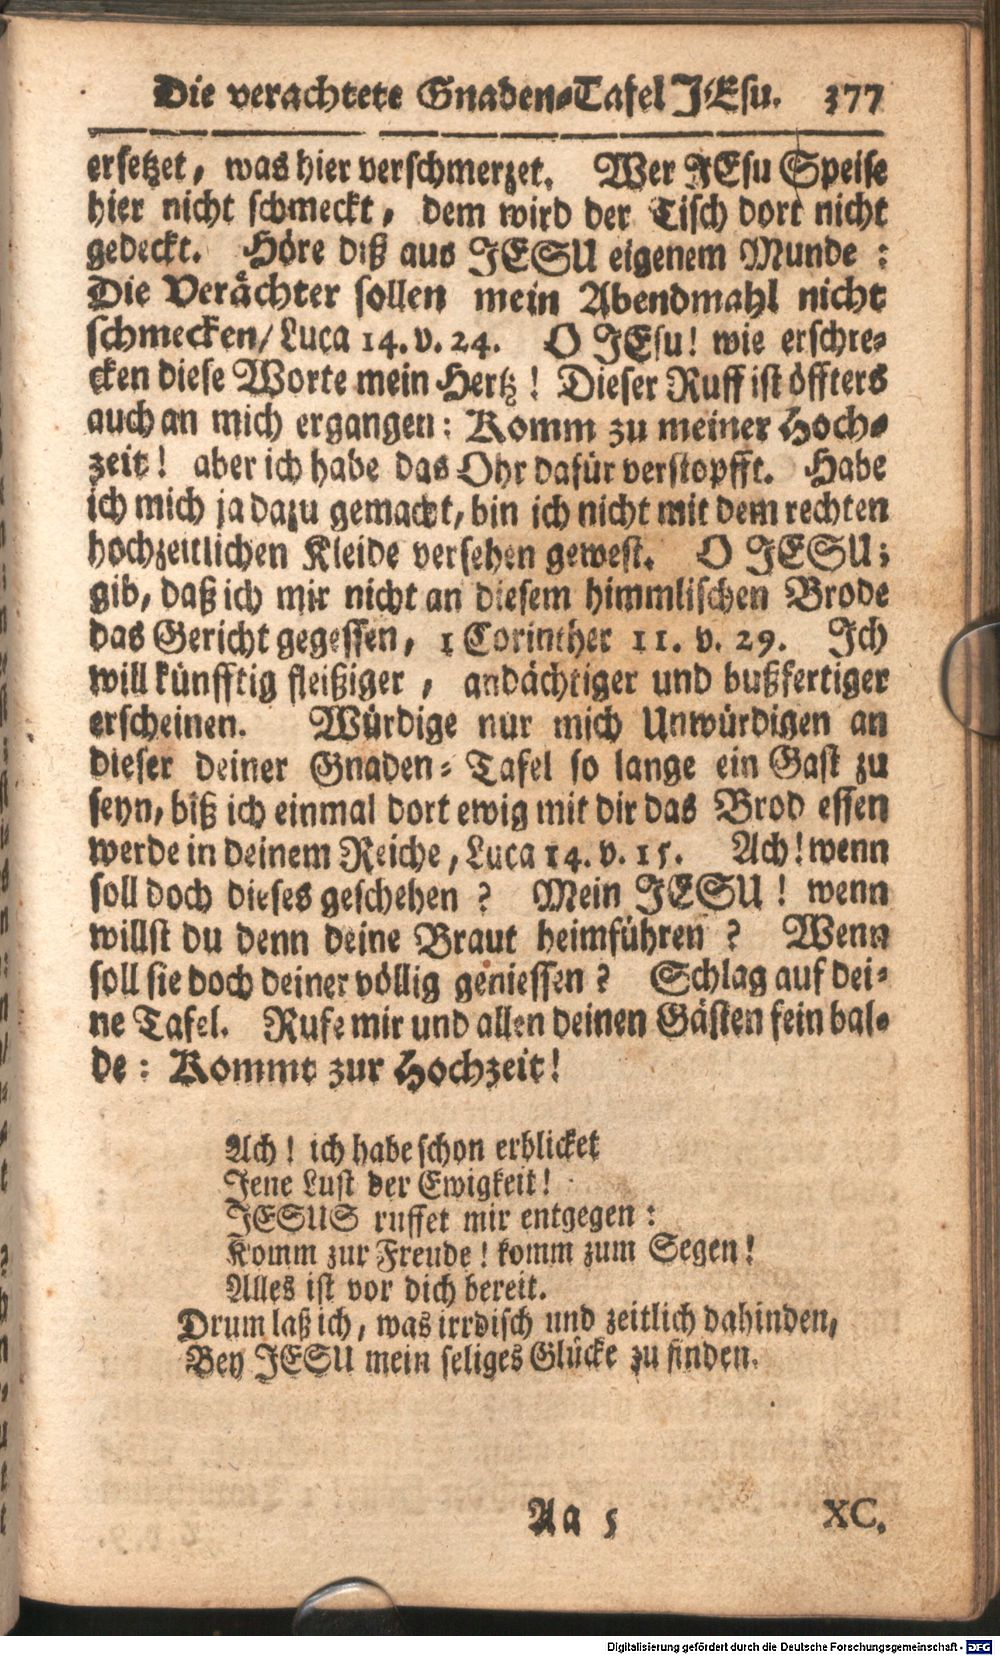 Die verachtete Gnaden-Tafel JEsu. 377
ersetzet, was hier verschmerzet. Wer JEsu Speise
hier nicht schmeckt, dem wird der Tisch dort nicht
gedeckt. Höre diß aus JESU eigenem Munde :
Die Verächter sollen mein Abendmahl nicht
schmecken/ Luca 14. v. 24. O JEsu! wie erschre-
cken diese Worte mein Hertz! Dieser Ruff ist öffters
auch an mich ergangen: Komm zu meiner Hoch-
zeit! aber ich habe das Ohr dafür verstopfft. Habe
ich mich ja dazu gemacht, bin ich nicht mit dem rechten
hochzeitlichen Kleide versehen gewest. O JESU;
gib, daß ich mir nicht an diesem himmlischen Brode
das Gericht gegessen, 1 Corinther 11. v. 29. Ich
will künfftig fleißiger, andächtiger und bußfertiger
erscheinen. Würdige nur mich Unwürdigen an
dieser deiner Gnaden-Tafel so lange ein Gast zu
seyn, biß ich einmal dort ewig mit dir das Brod essen
werde in deinem Reiche, Luca 14. v. 15. Ach! wenn
soll doch dieses geschehen ? Mein JESU! wenn
willst du denn deine Braut heimführen ? Wenn
soll sie doch deiner völlig geniessen ? Schlag auf dei-
ne Tafel. Rufe mir und allen deinen Gästen fein bal-
de : Kommt zur Hochzeit!
Ach! ich habe schon erblicket
Jene Lust der Ewigkeit!
JESUS ruffet mir entgegen :
Komm zur Freude! komm zum Segen!
Alles ist vor dich bereit.
Drum laß ich, was irrdisch und zeitlich dahinden,
Bey JESU mein seliges Glücke zu finden.
Aa 5 XC.
Digitalisierung gefördert durch die Deutsche Forschungsgemeinschaft - DFG